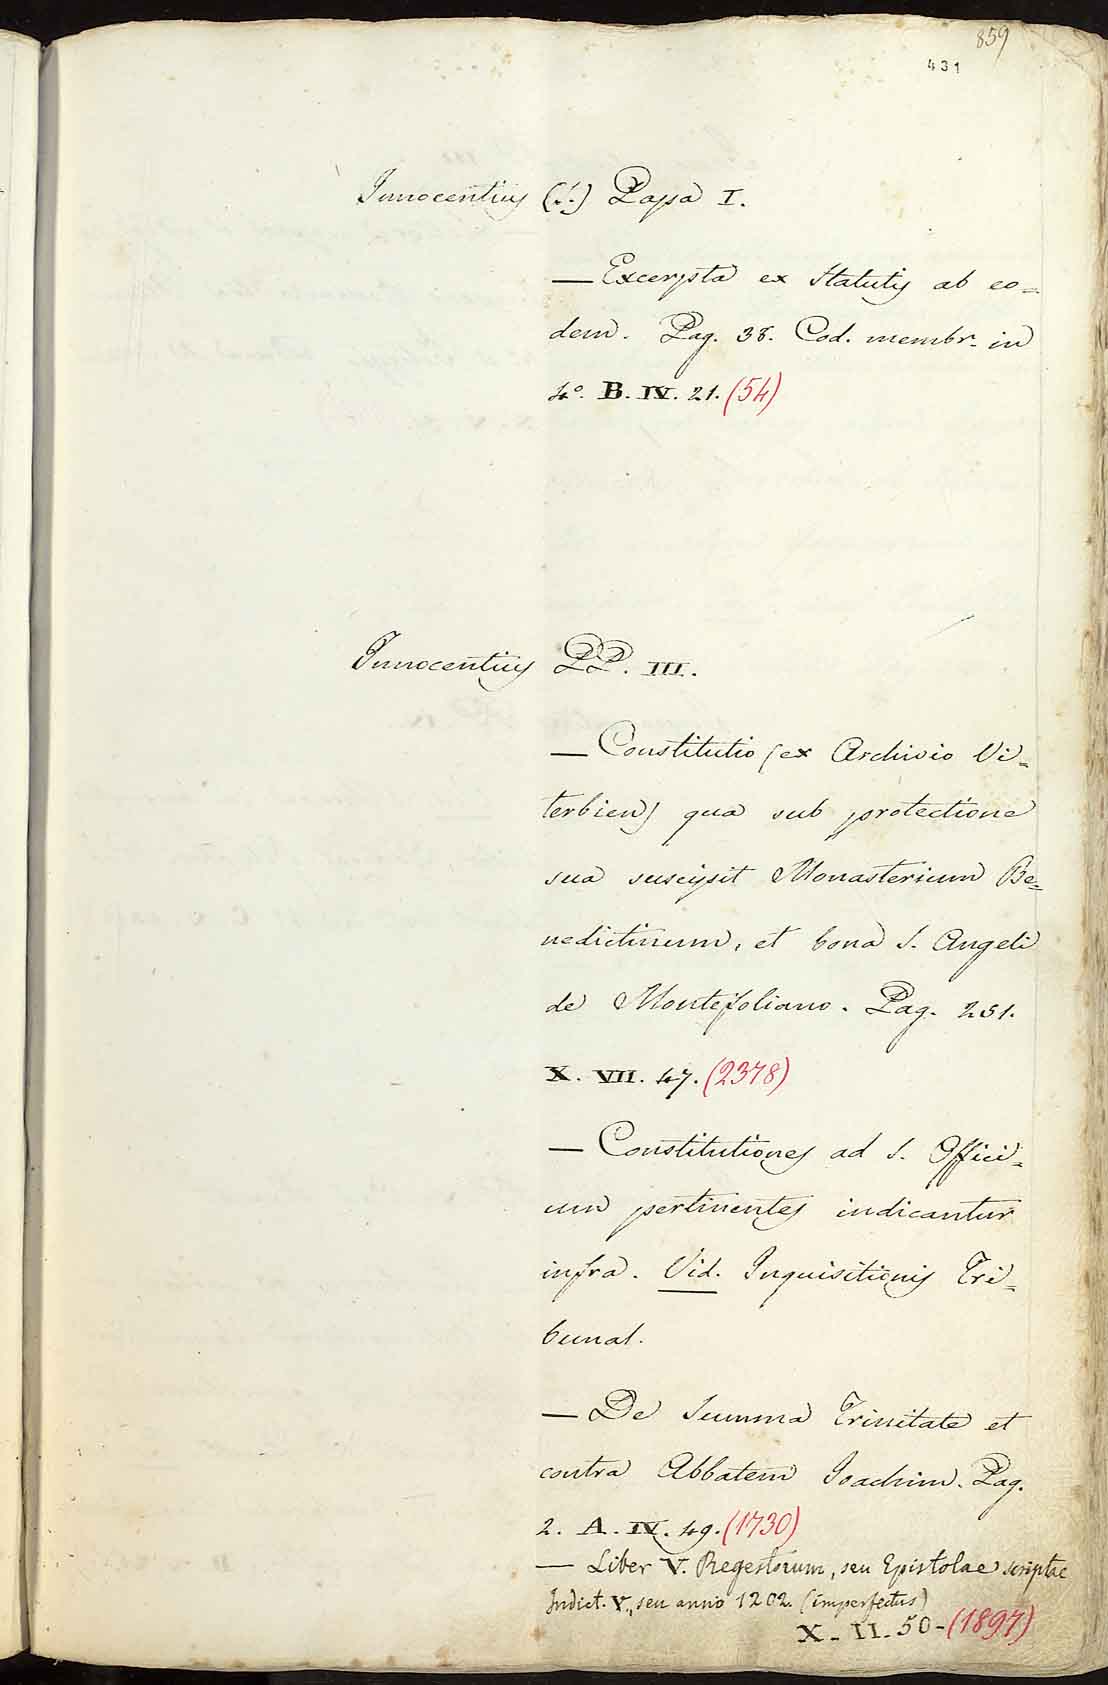 859
431
Innocentius (S.) Papa I.
— Excerpta ex Statutis ab eo=
dem. Pag. 38. Cod. membr. in
4.º B. IV. 21. (54)
Innocentius PP. III.
— Constitutio (ex Archivio Vi=
terbien) qua sub protectione
sua suscipit Monasterium Be=
nedictinum, et bona S. Angeli
de Montefoliano. Pag. 251.
X. VII. 47. (2378)
— Constitutiones ad S. Offici=
um pertinentes indicantur
infra. Vid. Inquisitionis Tri=
bunal.
— De Summa Trinitate et
contra Abbatem Joachim. Pag.
2. A. IV. 49. (1730)
— Liber V. Regestorum, seu Epistolae scriptae
Indict. V., seu anno 1202. (imperfectus)
X - II - 50 - (1897)